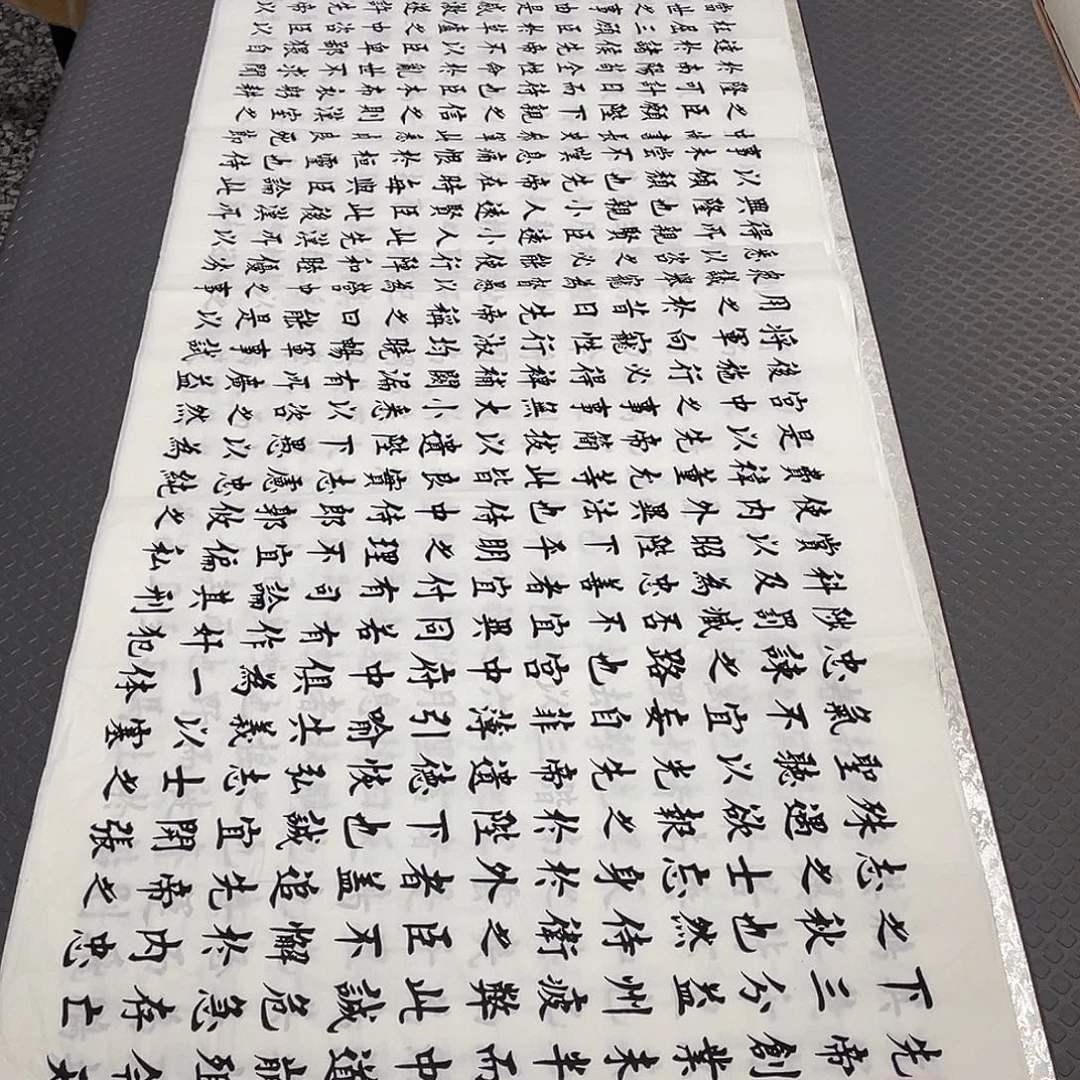 先帝創業未半而中道崩殂今天
下三分益州疲弊此誠危急存亡
之秋也然侍衛之臣不懈於內忠
志之士忘身於外者盖追先帝之
殊遇欲報之於陛下也誠宜開張
聖聽以光先帝遺德恢弘志士之
氣不宜妄自菲薄引喻失義以塞
忠諫之路也宮中府中俱為一体
陟罰臧否不宜異同若有作奸犯
科及為忠善者宜付有司論其刑
賞以昭陛下平明之理不宜偏私
使內外異法也侍中侍郎郭攸之
費禕董允等此皆良實志慮忠純
是以先帝簡拔以遺陛下愚以為
宮中之事事無大小悉以咨之然
後施行必得裨補闕漏有所廣益
將軍向寵性行淑均曉暢軍事試
用之於昔日先帝稱之曰能是以
眾議舉寵為督愚以為營中之事
悉以咨之必能使行陣和睦優劣
得所親賢臣遠小人此先漢所以
興隆也親小人遠賢臣此後漢所
以傾頹也先帝在時每與臣論此
事未嘗不歎息痛恨於桓靈也侍
中尚書長史參軍此悉貞良死節
之臣願陛下親之信之則漢室之
隆可計日而待也臣本布衣躬耕
於南陽苟全性命於亂世不求聞
達於諸侯先帝不以臣卑鄙猥自
枉屈三顧臣於草廬之中咨臣以
當世之事由是感激遂許先帝以